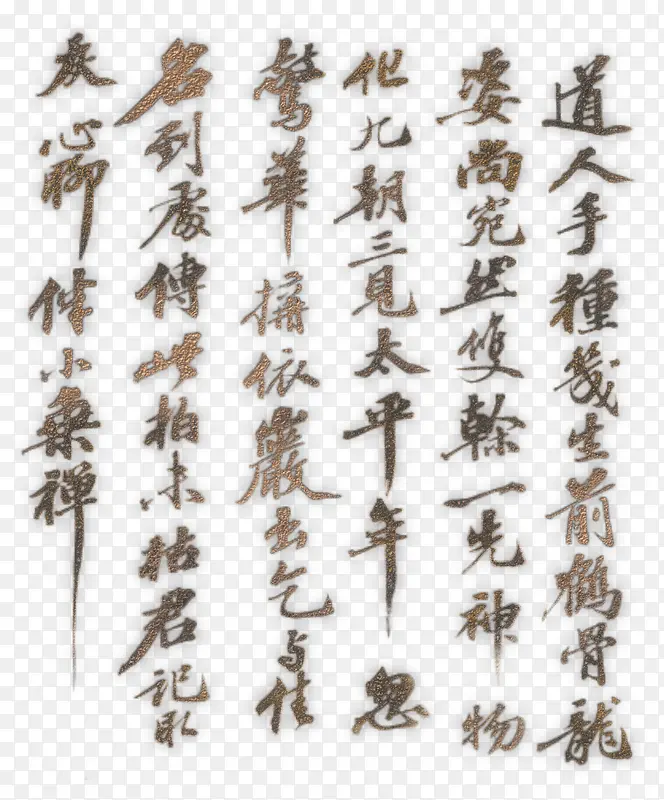 道人手種幾生前鶴骨龍
姿尚宛然雙榦一先神物
化九朝三見太平年忽
驚華構依巖出乞与佳
名到處傳此柏未枯君記取
灰心聊伴小乘禪